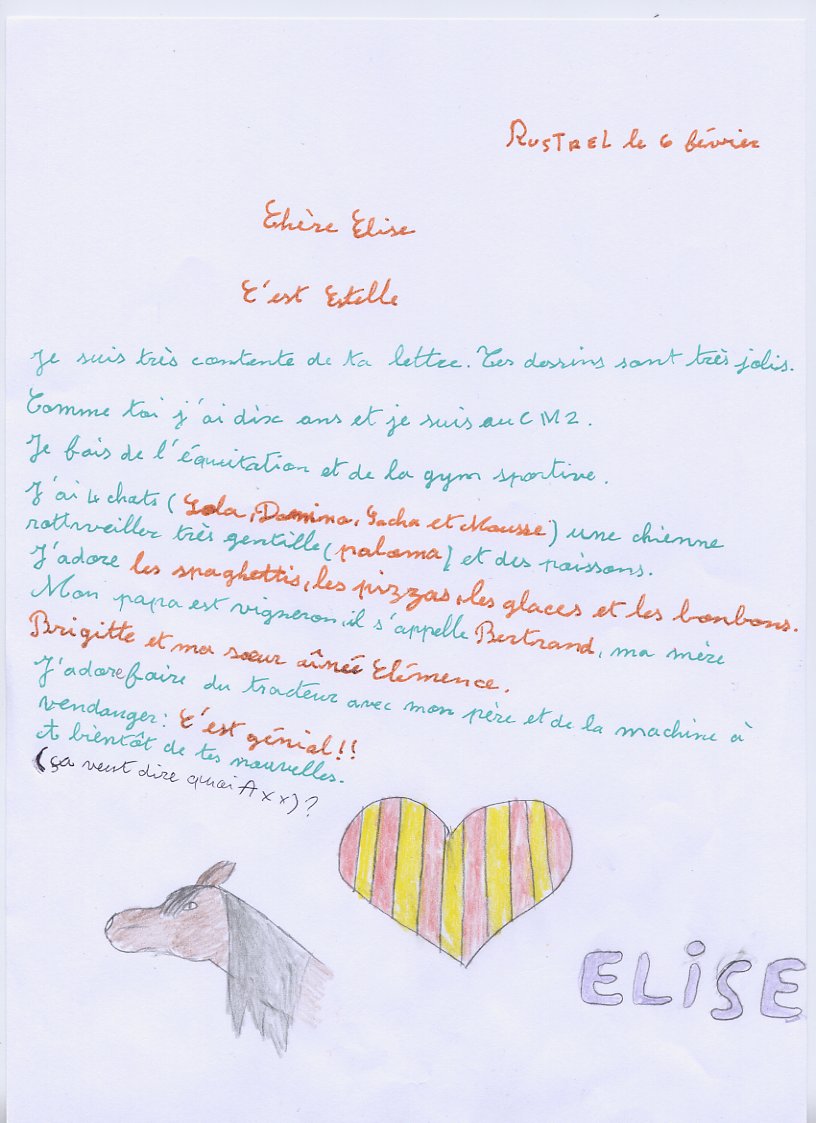 RUSTREL le 6 février
Chère Elise
C'est Estelle
Je suis très contente de ta lettre. Tes dessins sont très jolis.
Comme toi j'ai dix ans et je suis au CM2.
Je fais de l'équitation et de la gym sportive.
J'ai 4 chats (Lola, Domino, Sacha et Mousse) une chienne
rottweiller très gentille (paloma) et des poissons.
J'adore les spaghettis, les pizzas, les glaces et les bonbons.
Mon papa est vigneron, il s'appelle Bertrand, ma mère
Brigitte et ma sœur aînée Clémence.
J'adore faire du tracteur avec mon père et de la machine à
vendanger: C'est génial!!
A bientôt de tes nouvelles.
(ça veut dire quoi A xx)?
ELiSE